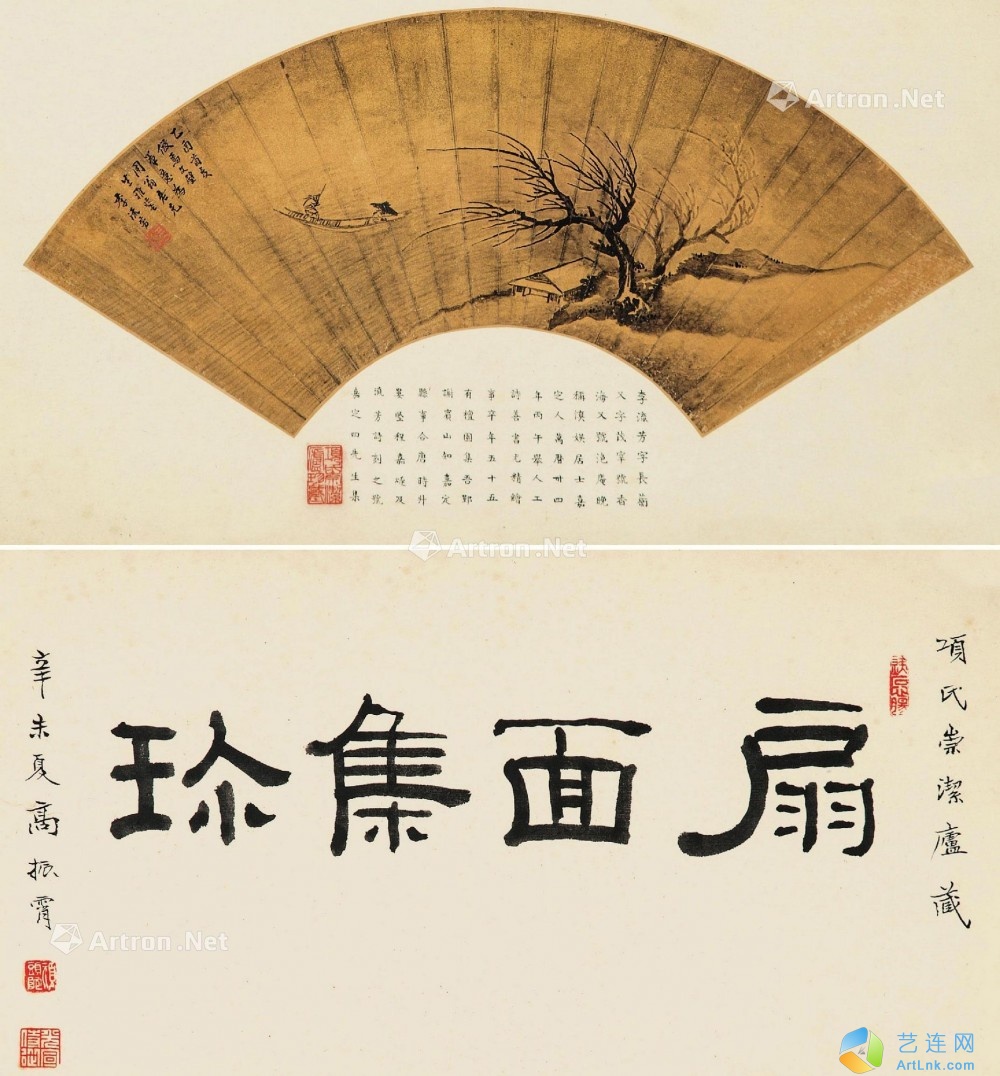 首夏
李流芳
李流芳字長蘅
又字茂宰號香
海又號泡庵晚
稱慎娛居士嘉
定人萬曆卅四
年丙午舉人工
詩善書尤精繪
事卒年五十五
有檀園集吾鄞
謝賓山知嘉定
縣事合唐時升
婁堅程嘉燧及
流芳詩刻之號
嘉定四先生集
項氏崇潔廬藏
扇面集珍
辛未夏高振霄
Artron.Net
Artron.Net
Artron.Net
Artron.Net
艺连网
ArtLnk.com